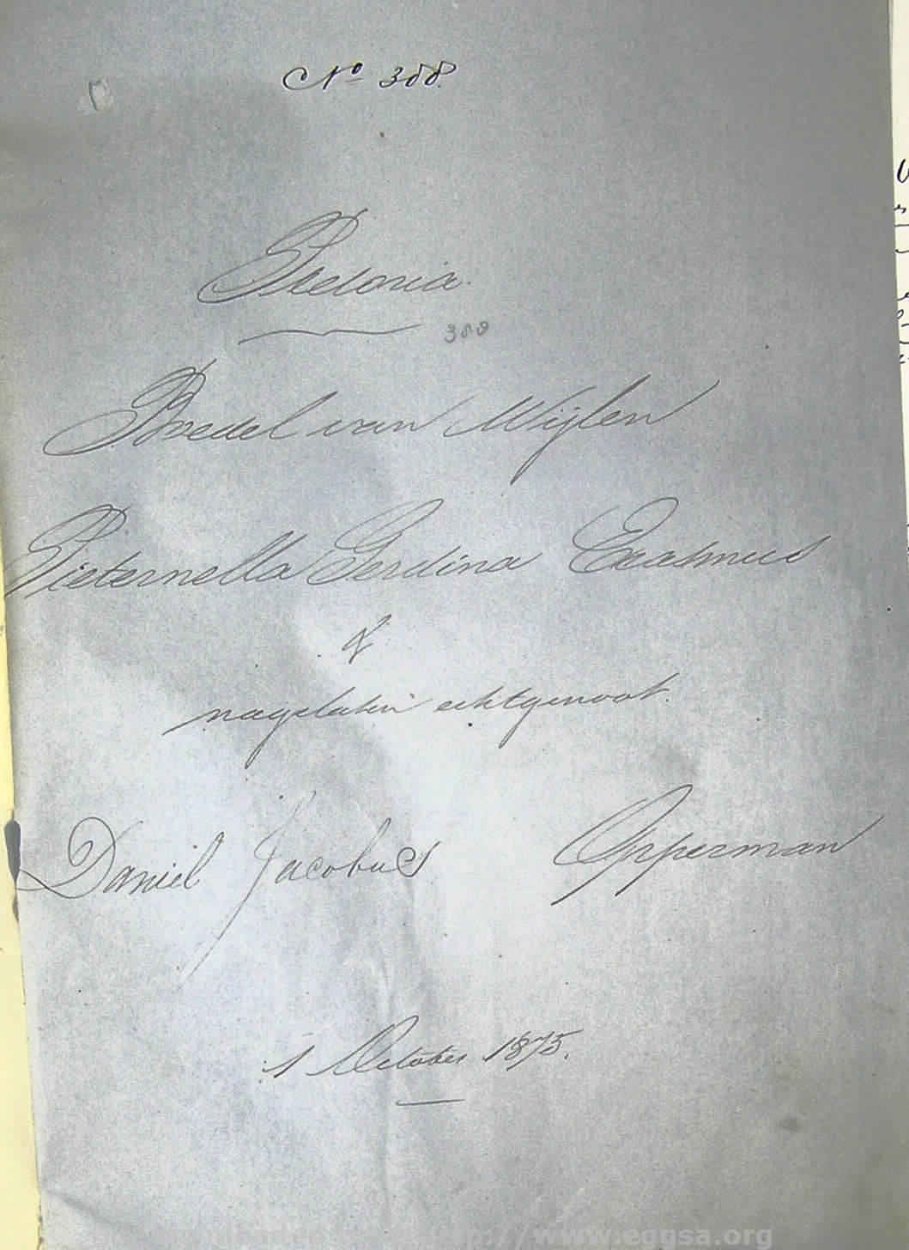 No 388.
Pretoria.
388
Boedel van Wijlen
Pieternella Gerdina Erasmus
&
nagelaten echtgenoot.
Daniel Jacobus Opperman
1 October 1875.
www.eggsa.org